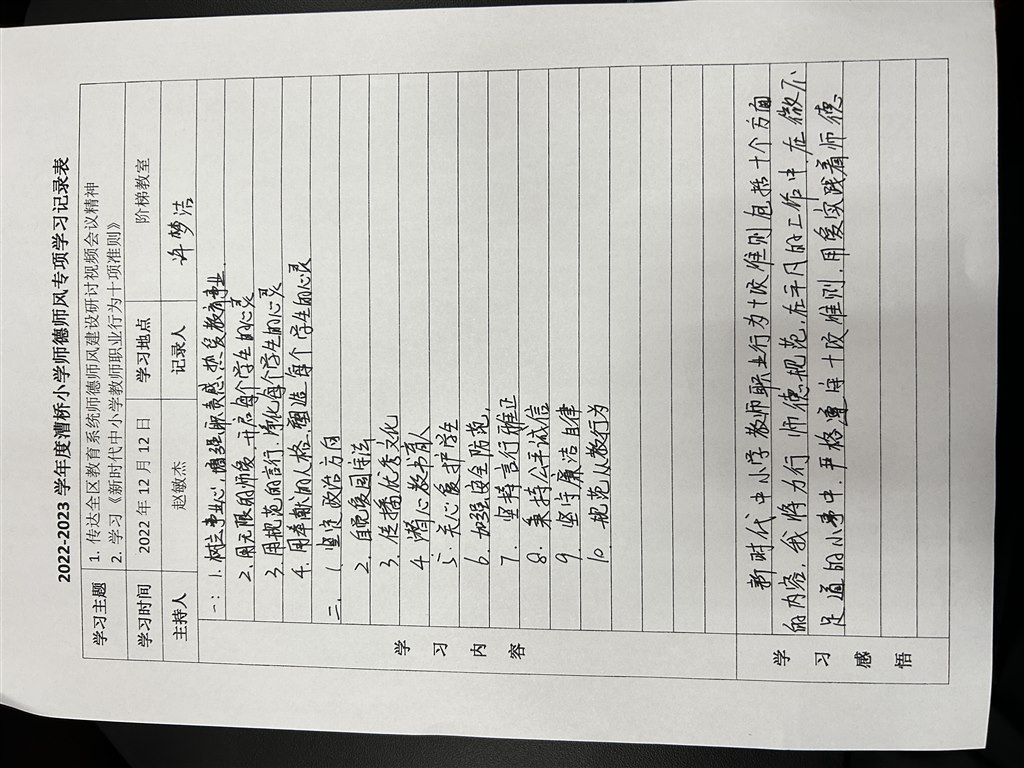 2022-2023 学年度漕桥小学师德师风专项学习记录表
学习主题
1. 传达全区教育系统师德师风建设研讨视频会议精神
2. 学习《新时代中小学教师职业行为十项准则》
学习时间 2022 年 12 月 12 日 学习地点 阶梯教室
主持人 赵敏杰 记录人 许梦洁
学习内容
一: 1. 树立事业心,增强职责感,热爱教育事业.
2. 用无限的师爱,开启每个学生的心灵
3. 用规范的言行,净化每个学生的心灵
4. 用奉献的人格,塑造每个学生的心灵
二. 1. 坚定政治方向
2. 自觉爱国守法
3. 传播优秀文化
4. 潜心教书育人
5. 关心爱护学生
6. 加强安全防范,
7. 坚持言行雅正
8. 秉持公平诚信
9. 坚守廉洁自律
10. 规范从教行为
学习感悟
新时代中小学教师职业行为十项准则包括十个方面
的内容,我将力行师德规范,在平凡的工作中,在微不
足道的小事中,严格遵守十项准则,用爱实践着师德